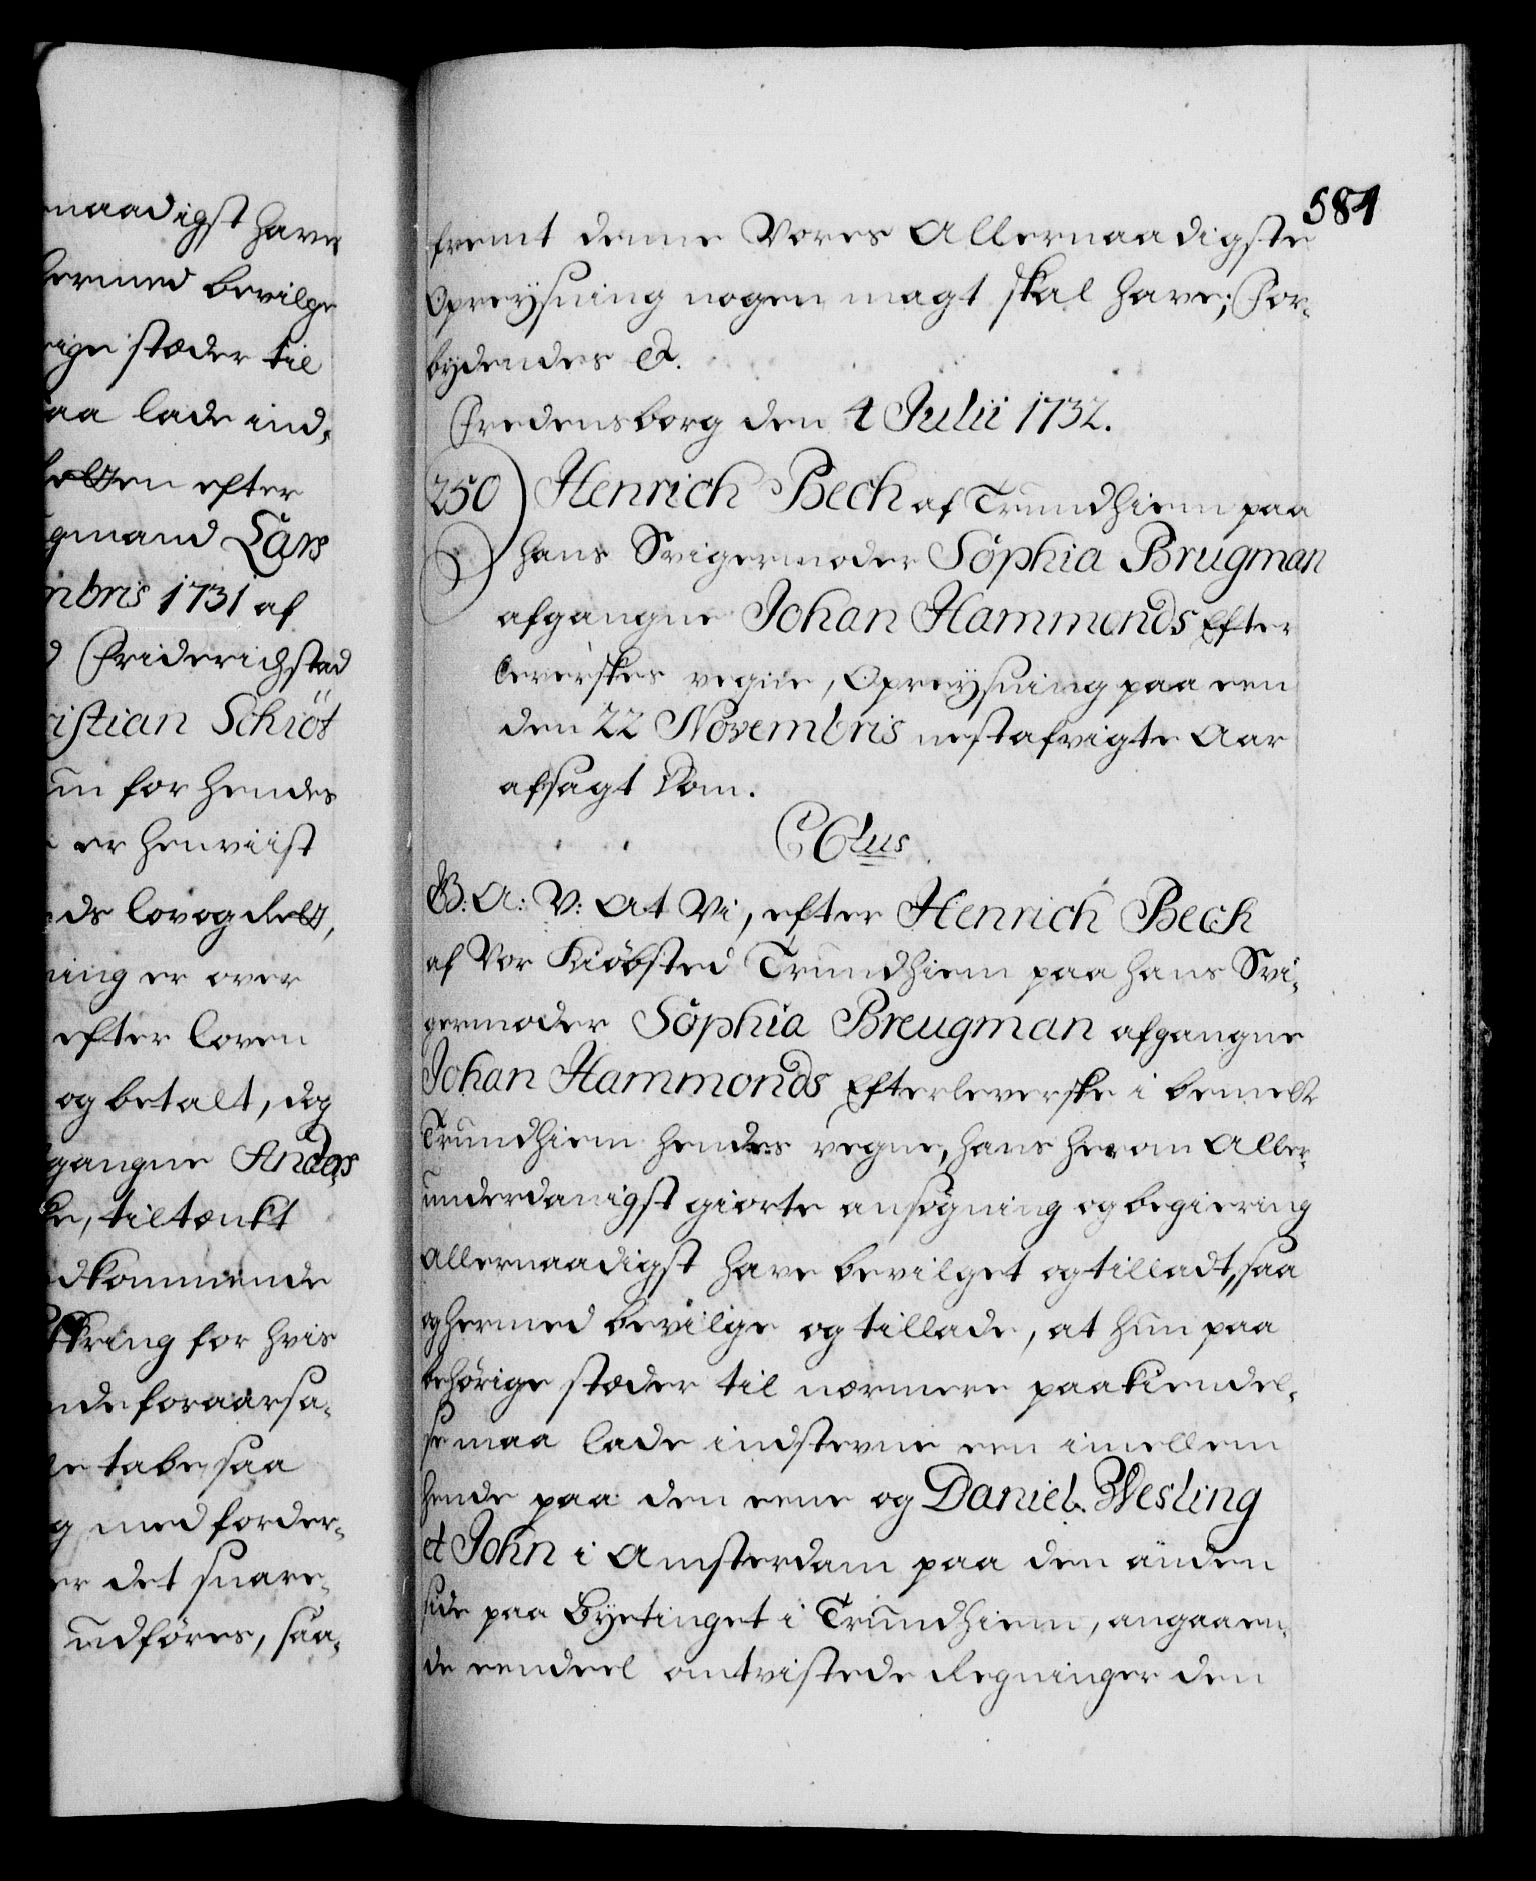 naadigst have
hermed bevilge
rige stæder til
aa lade ind-
holden efter
gmand Lars
mbris 1731 af
d Friderichstad
ristian Schiöt
um for hendes
er henviist
nds lov og Ret,
ning er over
efter loven
og betalt, dog
gangne Anders
ke, tiltænkt
dkommende
kring for hvis
nde foraarsa-
le tabe, saa
g med forder-
er det snare-
udføres, saa-
584
fremt denne Vores Allernaadigste
Opreysning nogen magt skal have; For-
bydendes &.
Fredensborg den 4 Julii 1732.
250) Henrich Bech af Trundhiem paa
hans Svigermoder Sophia Brugman
afgangne Johan Hammonds Efter
leverskes vegne, Opreysning paa een
den 22 Novembris nestafvigte Aar
afsagt Dom.
C6tus
G: A: V: At Vi, efter Henrich Beck
af Vor Kiøbsted Trundhiem paa hans Svi-
germoder Sophia Breugman afgangne
Johan Hammonds Efterleverske i bemelte
Trundhiem hendes vegne, hans herom Aller-
underdanigst giorte ansøgning og begiering
Allernaadigst have bevilget og tilladt, saa
og hermed bevilge og tillade, at hun paa
behörige stæder til nærmere paakiendel-
se maa lade indstevne een imellem
hende paa den eene og Daniel Wesling
et John i Amsterdam paa den anden
side paa Byetinget i Trundhiem, angaaen-
de eendeel omtvistede Regninger den